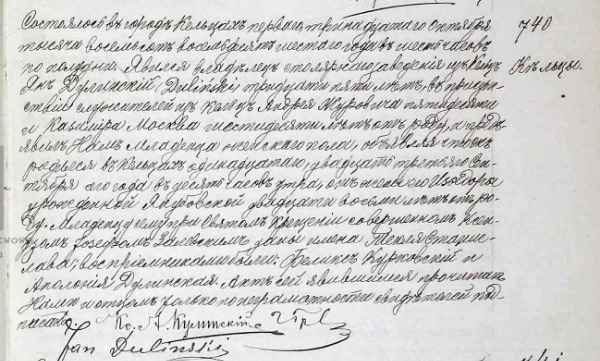 Состоялось въ городѣ Кельцахъ перваго, тринадцатаго Октября
тысяча восемьсотъ восемьдесятъ шестаго года въ шесть часовъ
по полудни. Явился владѣлецъ столярнаго заведенія изъ Кѣлецъ
Янъ Дулинскій Dulinski тридцати пяти лѣтъ, въ присут-
ствіи свидѣтелей изъ Кѣлецъ Андрея Муровича пятидесяти
и Казиміра Москва шестидесяти лѣтъ отъ роду, и предъ-
явилъ Намъ Младенца женскаго пола, объявляя что онъ
родился въ Кельцахъ одинадцатаго, двадцать третьяго Сен-
тября сего года въ десять часовъ утра, отъ жены его Изидоры
урожденной Якубовской двадцати восьми лѣтъ отъ ро-
ду. Младенцу сему при Святомъ Крещеніи совершенномъ Ксен-
дзомъ Іозефомъ Залевскимъ даны имена Текля Станис-
лава; воспріемниками были: Феликсъ Курковскій и
Аполонія Дулинская. Актъ сей явившимся прочитанъ
Нами и отцомъ только по неграмотности свидѣтелей под-
писанъ.
Кс. А.
Jan Duliński
740
Кѣльцы.